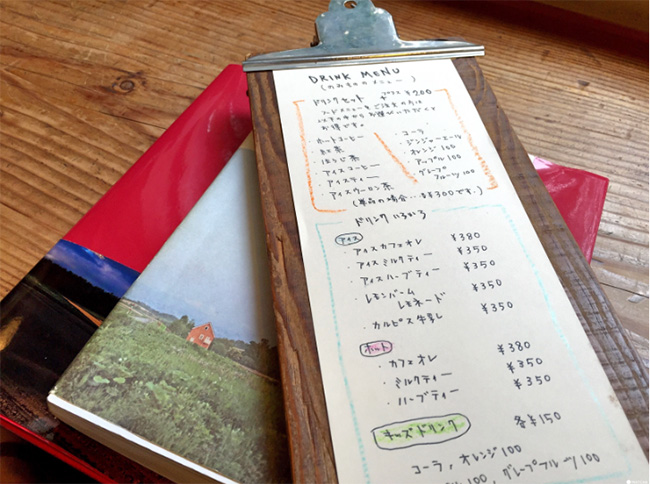 DRINK MENU
(のみもののメニュー)
ドリンクセット プラス ¥200
フードメニューをご注文の方は
以下の中からお選びいただくと
お得です。
・ホットコーヒー
・紅茶
・ほうじ茶
・アイスコーヒー
・アイスティー
・アイスウーロン茶
・コーラ
・ジンジャーエール
・オレンジ100
・アップル100
・グレープ
フルーツ100
(単品の場合…各¥300です。)
ドリンクいろいろ
アイス
・アイスカフェオレ ¥380
・アイスミルクティー ¥350
・アイスハーブティー ¥350
・レモンバーム
レモネード ¥350
・カルピス牛乳し ¥350
ホット
・カフェオレ ¥380
・ミルクティー ¥350
・ハーブティー ¥350
キッズドリンク 各¥150
コーラ、オレンジ100
100、グレープフルーツ100